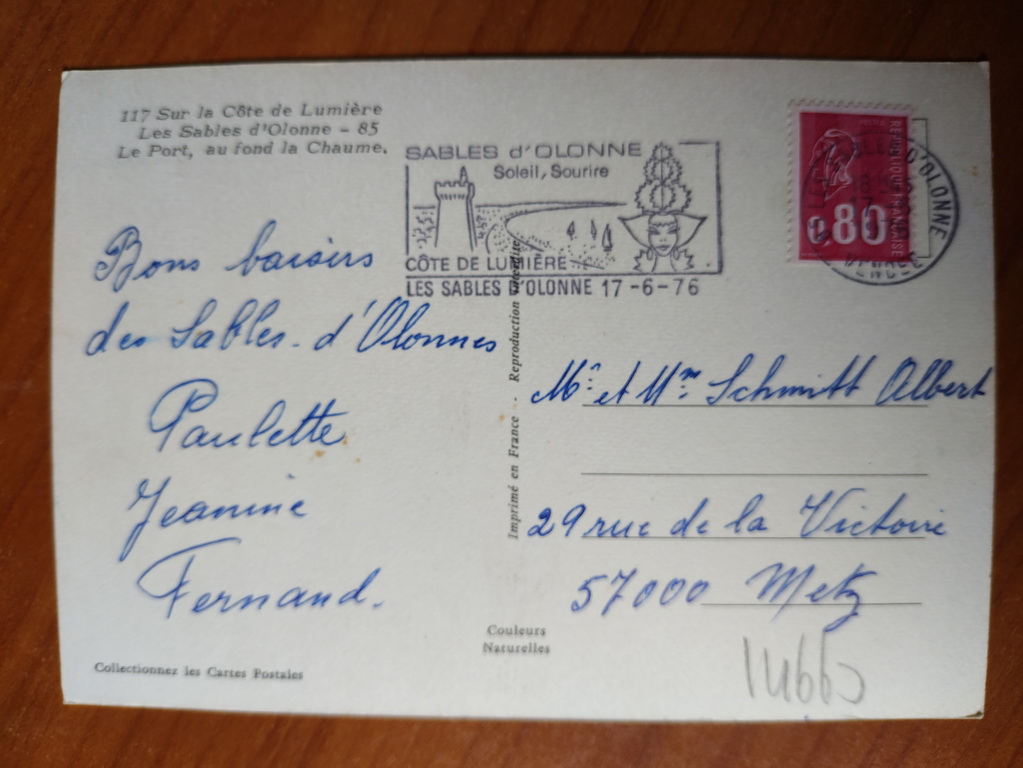 117 Sur la Côte de Lumière
Les Sables d'Olonne - 85
Le Port, au fond la Chaume.
SABLES d'OLONNE
Soleil, Sourire
CÔTE DE LUMIÈRE
LES SABLES D'OLONNE 17-6-76
REPUBLIQUE FRANÇAISE
0,80
D'OLONNE
VENDEE
Bons baisers
des Sables-d'Olonnes
Paulette
Jeanine
Fernand.
Imprimé en France - Reproduction interdite
Mr et Mme Schmitt Albert
29 rue de la Victoire
57000 Metz
Couleurs
Naturelles
Collectionnez les Cartes Postales